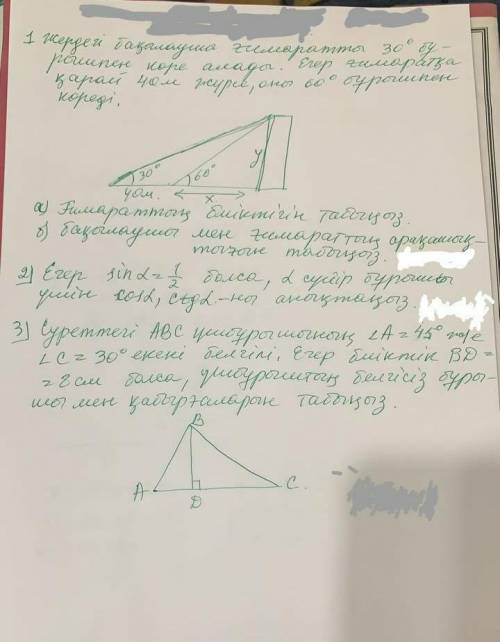 1 Жердегі бақылаушы ғимаратты 30° бұ-
рышпен көре алады. Егер ғимаратқа
қарай 40м жүрсе, оны 60° бұрышпен
көреді.
30°
60°
y
40м.
x
а) Ғимараттың биіктігін табыңыз.
б) бақылаушы мен ғимараттың арақашық-
тығын табыңыз.
2) Егер sinα=1/2 болса, α сүйір бұрышы
үшін cosα, ctgα-ны анықтаңыз.
3) Суреттегі ABC үшбұрышының ∠A=45° және
∠C=30° екені белгілі, Егер биіктік BD=
=8см болса, үшбұрыштың белгісіз бұры-
шы мен қабырғаларын табыңыз.
B
A
D
C.